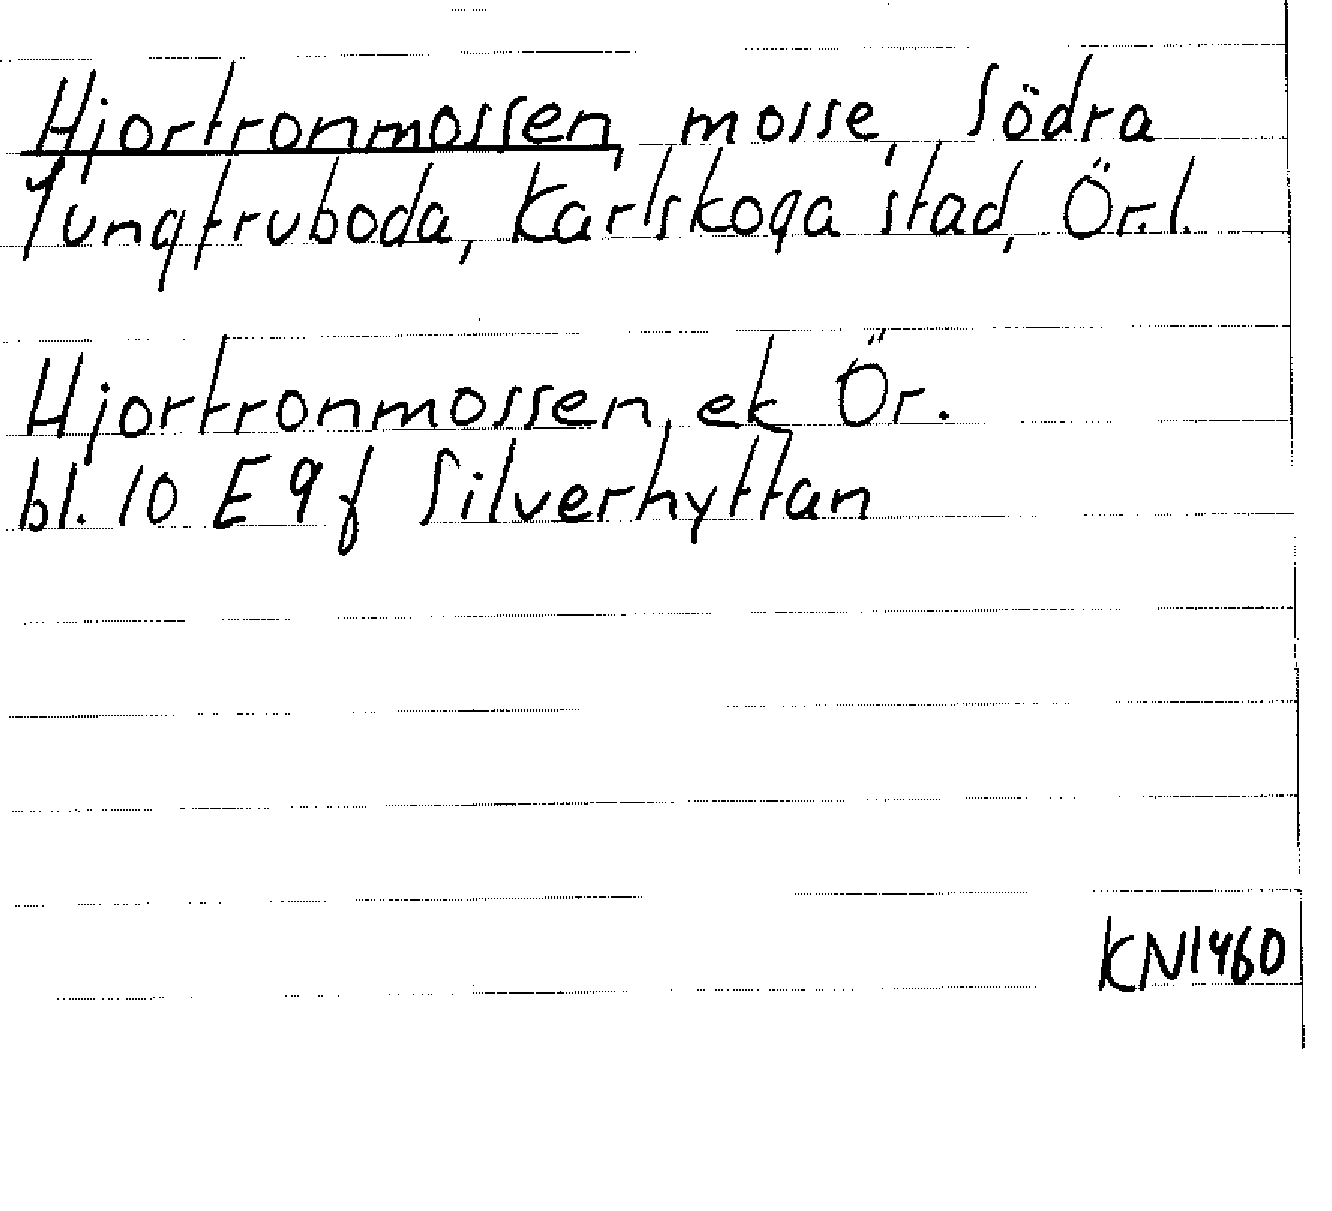 Hjortronmossen, mosse, Södra
Jungfruboda, Karlskoga stad, Ör.l.
Hjortronmossen, ek Ör.
bl. 10 E 9 f Silverhyttan
KN1460